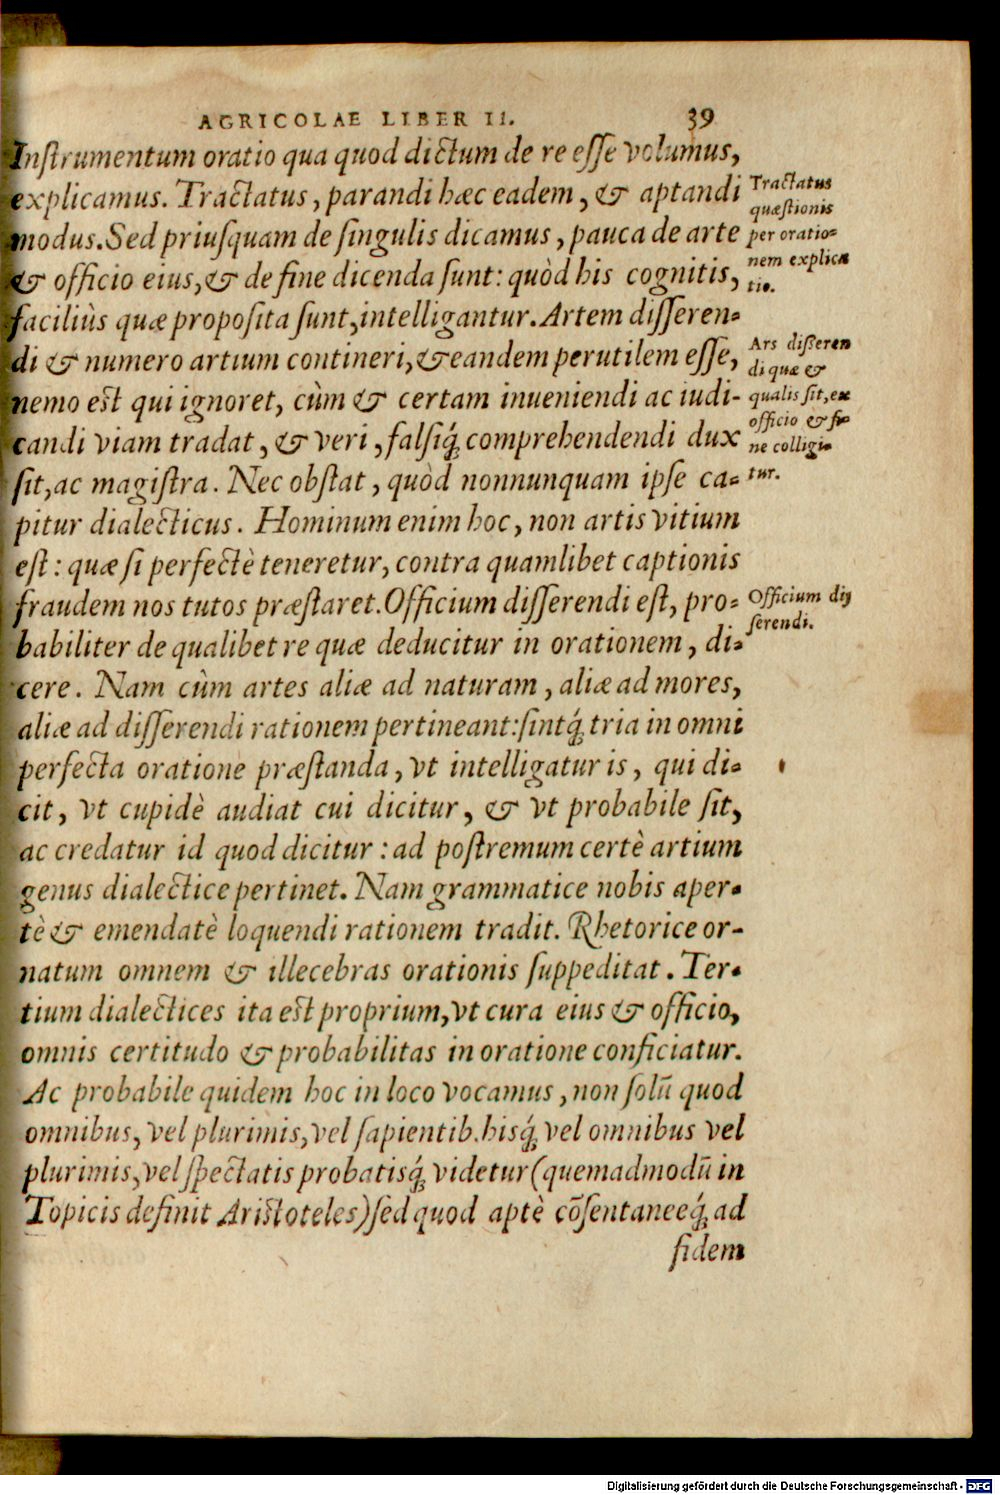 AGRICOLAE LIBER II. 39
Inſtrumentum oratio qua quod dictum de re eſſe volumus,
explicamus. Tractatus, parandi hæc eadem, & aptandi
modus. Sed priuſquam de ſingulis dicamus, pauca de arte
& officio eius, & de fine dicenda ſunt: quòd his cognitis,
faciliùs quæ propoſita ſunt, intelligantur. Artem diſſeren-
di & numero artium contineri, & eandem perutilem eſſe,
nemo est qui ignoret, cùm & certam inueniendi ac iudi-
candi viam tradat, & veri, falſiq́; comprehendendi dux
ſit, ac magiſtra. Nec obſtat, quòd nonnunquam ipſe ca-
pitur dialecticus. Hominum enim hoc, non artis vitium
eſt: quæ ſi perfectè teneretur, contra quamlibet captionis
fraudem nos tutos præſtaret. Officium diſſerendi eſt, pro-
babiliter de qualibet re quæ deducitur in orationem, di-
cere. Nam cùm artes aliæ ad naturam, aliæ ad mores,
aliæ ad diſſerendi rationem pertineant: ſintq́; tria in omni
perfecta oratione præſtanda, vt intelligatur is, qui di-
cit, vt cupidè audiat cui dicitur, & vt probabile ſit,
ac credatur id quod dicitur: ad poſtremum certè artium
genus dialectice pertinet. Nam grammatice nobis aper-
tè & emendatè loquendi rationem tradit. Rhetorice or-
natum omnem & illecebras orationis ſuppeditat. Ter-
tium dialectices ita est proprium, vt cura eius & officio,
omnis certitudo & probabilitas in oratione conficiatur.
Ac probabile quidem hoc in loco vocamus, non ſolū quod
omnibus, vel plurimis, vel ſapientib. hisq́; vel omnibus vel
plurimis, vel ſpectatis probatisq́; videtur (quemadmodū in
Topicis definit Aristoteles) ſed quod aptè cōſentaneeq́; ad
fidem
Tractatus
quæſtionis
per oratio-
nem explica
tio.
Ars diſſeren
di quæ &
qualis ſit, ex
officio & fi-
ne colligi-
tur.
Officium diſ
ſerendi.
Digitalisierung gefördert durch die Deutsche Forschungsgemeinschaft - DFG